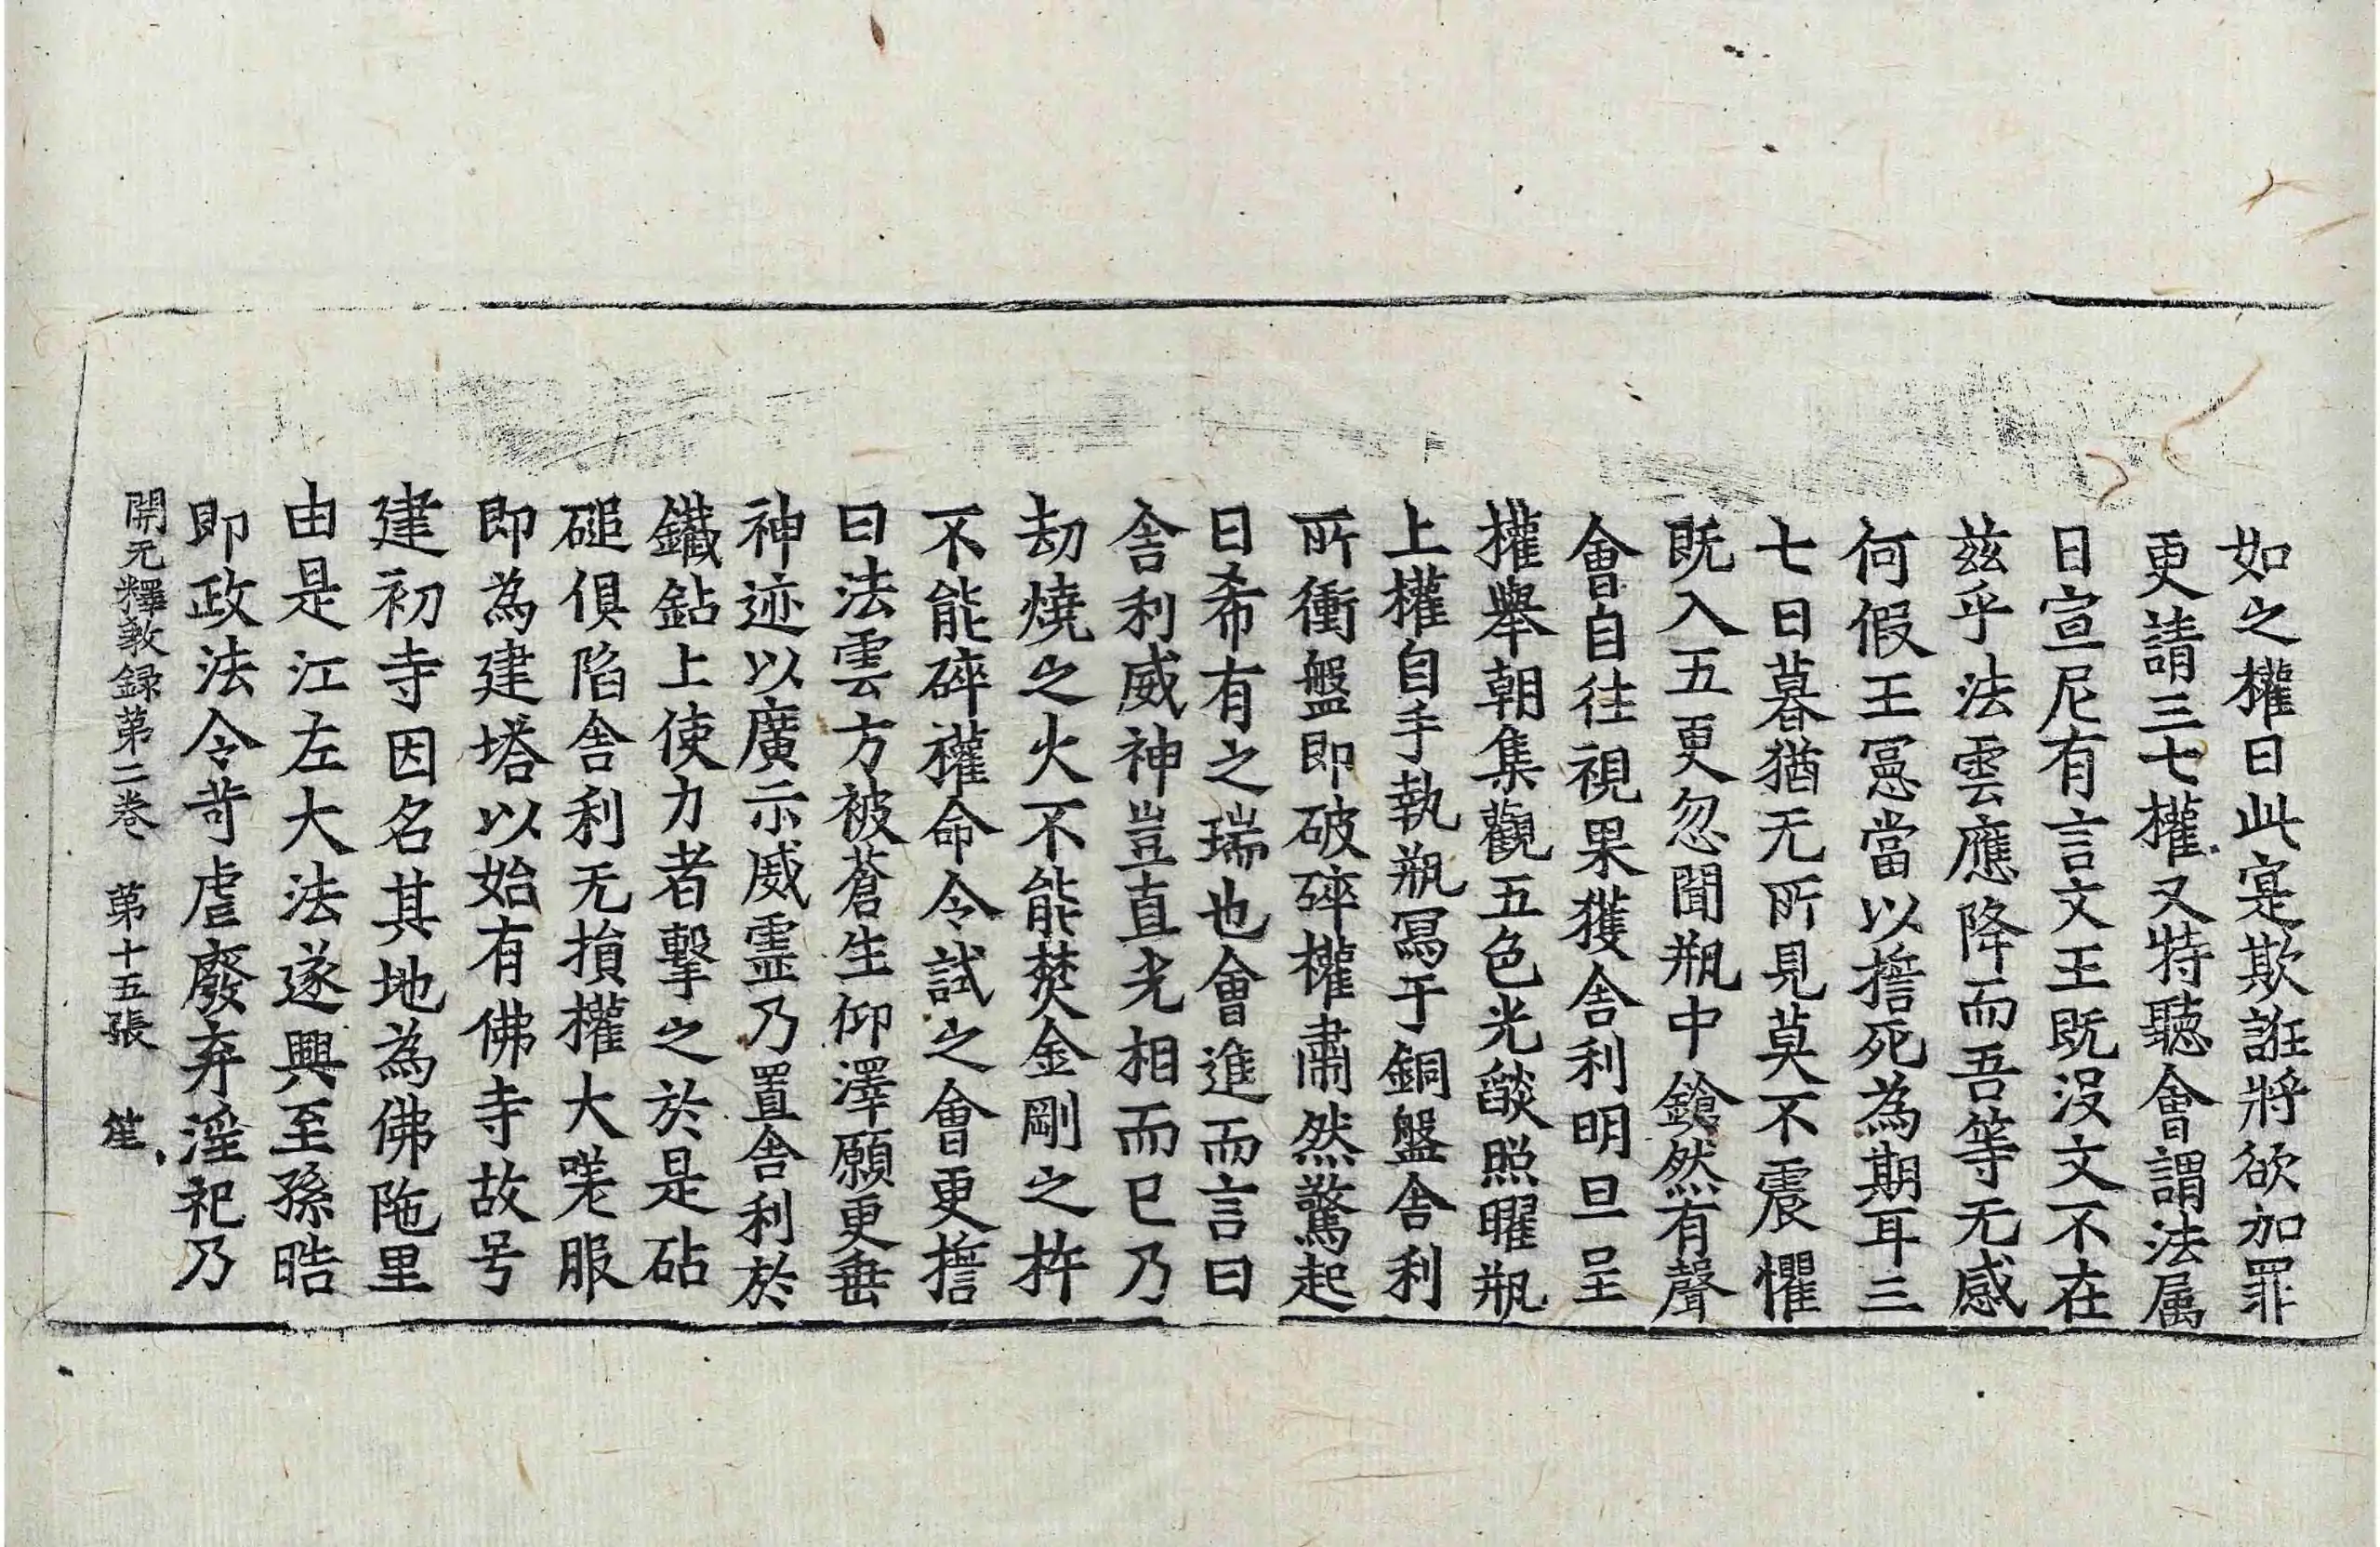 如之權曰此寔欺誑將欲加罪
更請三七權又特聽會謂法属
曰宣尼有言文王既没文不在
兹乎法雲應降而吾等无感
何假王憲當以㨾死為期耳三
七日暮猶无所見莫不震懼
既入五更忽聞瓶中鎗然有聲
會自往視果獲舍利明旦呈
權舉朝集觀五色光燄照曜瓶
上權自手執瓶冩于銅盤舍利
所衝盤即破碎權肅然驚起
曰希有之瑞也會進而言曰
舍利威神豈直光相而已乃
劫燒之火不能焚金剛之杵
不能碎權命令試之會更擔
曰法雲方被蒼生仰澤願更垂
神迹以廣示威霊乃置舍利於
鐵鉆上使力者擊之於是砧
磓俱陷舍利无損權大嗟服
即為建塔以始有佛寺故号
建初寺因名其地為佛陁里
由是江左大法遂興至孫晧
即政法令苛虐廢弃淫祀乃
開元釋教録第二巻 第十五張 笙